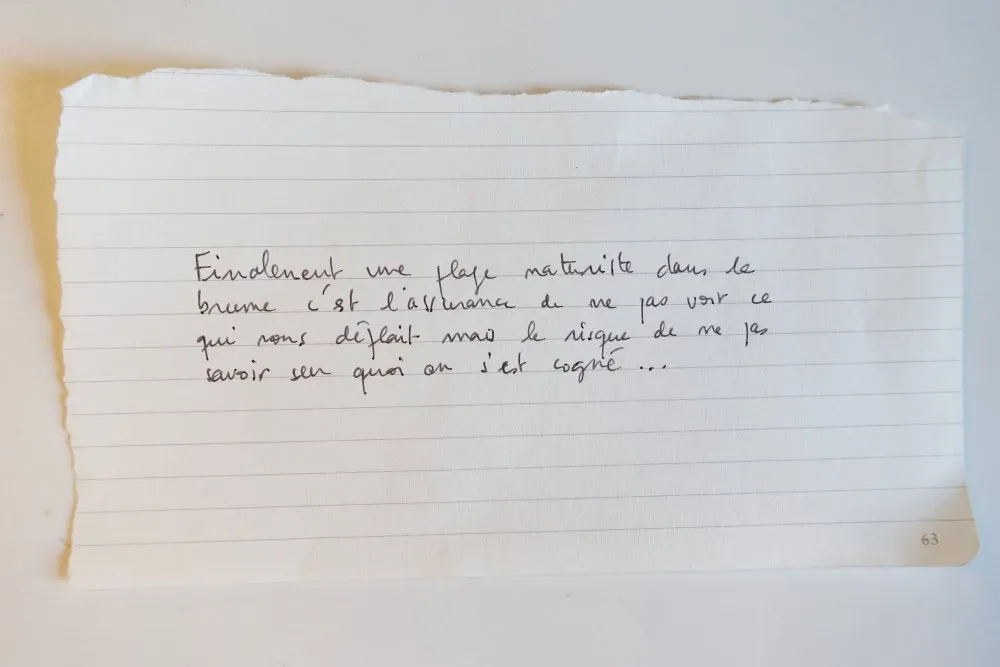 Finalement une plage naturiste dans la
brume c'est l'assurance de ne pas voir ce
qui nous déplait mais le risque de ne pas
savoir sur quoi on s'est cogné ...
63